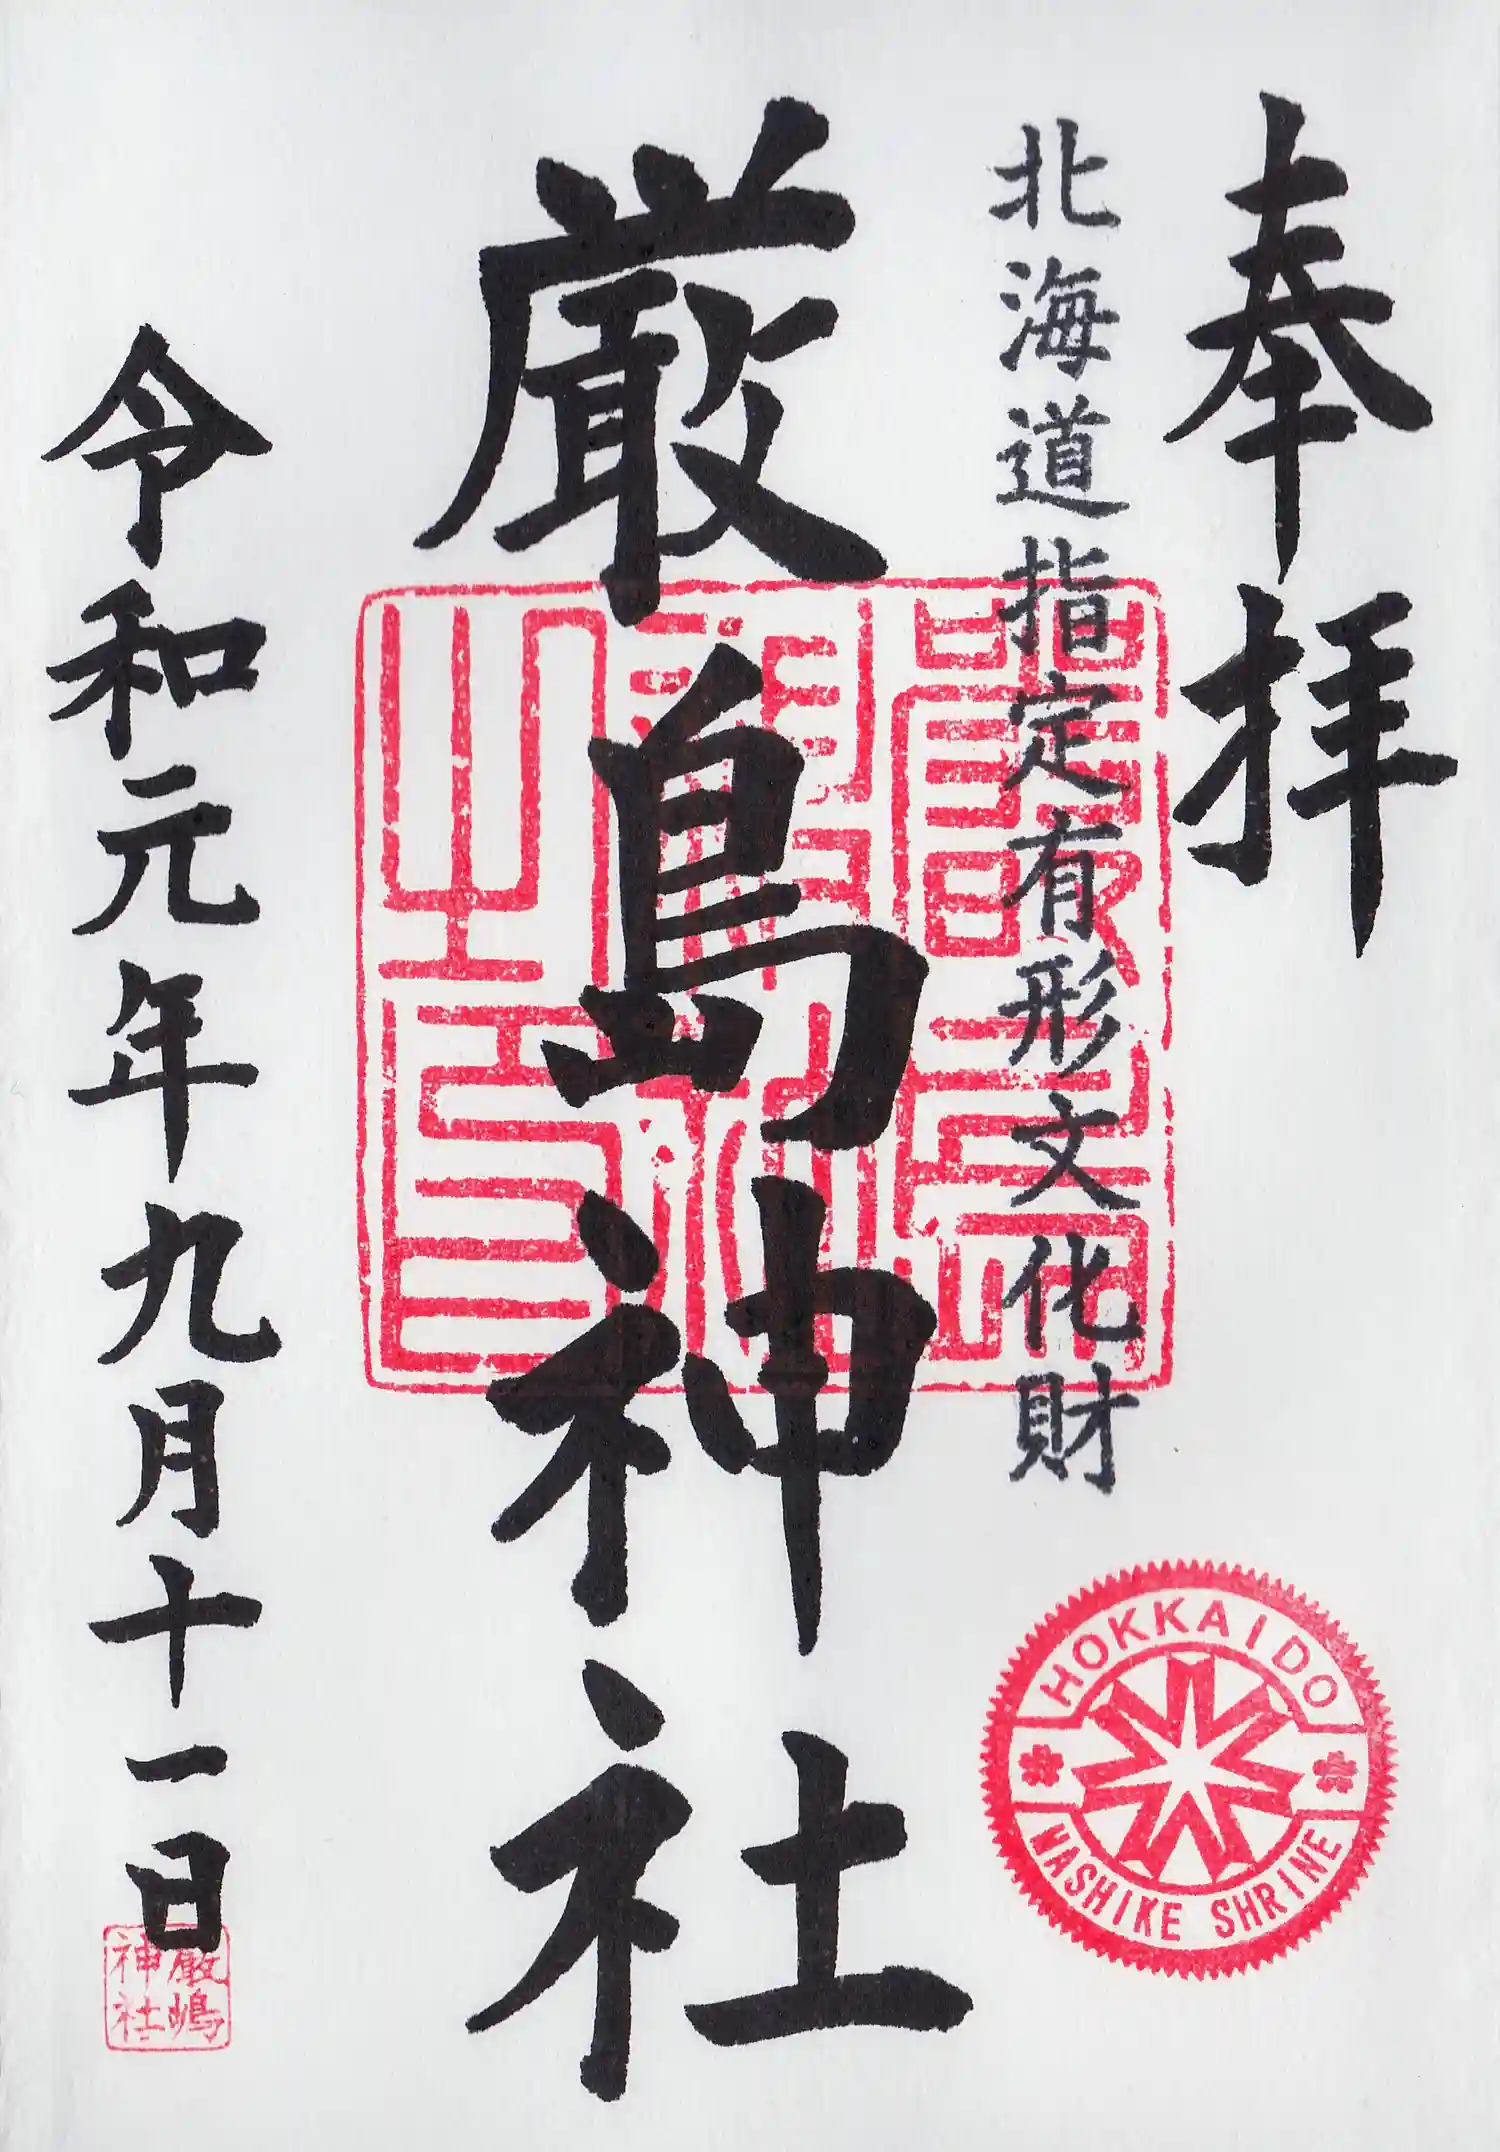 奉拝
北海道指定有形文化財
厳島神社
令和元年九月十一日
HOKKAIDO
NASHIKE SHRINE
厳嶋
神社